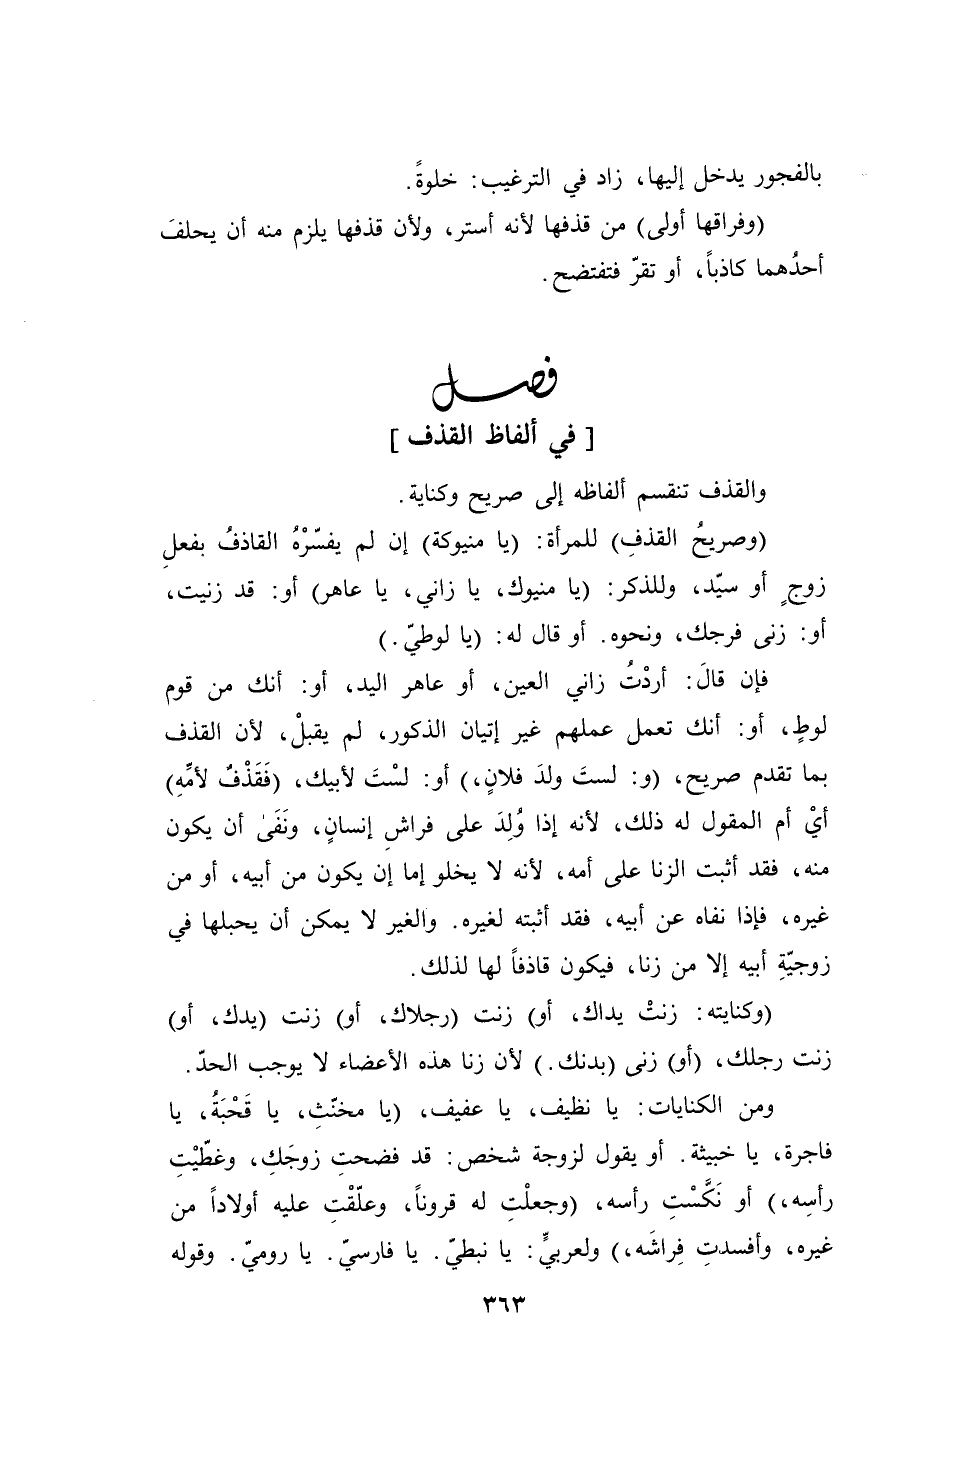 بالفجور يدخل إليها، زاد في الترغيب: خلوةً.
(وفراقها أولى) من قذفها لأنه أستر، ولأن قذفها يلزم منه أن يحلفَ
أحدُهما كاذباً، أو تقرّ فتفتضح.
فصل
[ في ألفاظ القذف ]
والقذف تنقسم ألفاظه إلى صريح وكناية.
(وصريحُ القذفِ) للمرأة: (يا منيوكة) إن لم يفسّرْهُ القاذفُ بفعلِ
زوجٍ أو سيّد، وللذكر: (يا منيوك، يا زاني، يا عاهر) أو: قد زنيت،
أو: زنى فرجك، ونحوه. أو قال له: (يا لوطيّ.)
فإن قالَ: أردْتُ زاني العين، أو عاهر اليد، أو: أنك من قوم
لوطٍ، أو: أنك تعمل عملهم غير إتيان الذكور، لم يقبلْ، لأن القذف
بما تقدم صريح، (و: لستَ ولدَ فلانٍ،) أو: لسْتَ لأبيك، (فَقَذْفٌ لأمِّهِ)
أيْ أم المقول له ذلك، لأنه إذا وُلِدَ على فراشِ إنسانٍ، ونَفَىٰ أن يكون
منه، فقد أثبت الزنا على أمه، لأنه لا يخلو إما إن يكون من أبيه، أو من
غيره، فإذا نفاه عن أبيه، فقد أثبته لغيره. والغير لا يمكن أن يحبلها في
زوجيّةِ أبيه إلا من زنا، فيكون قاذفاً لها لذلك.
(وكنايته: زنتْ يداك، أو) زنت (رجلاك، أو) زنت (يدك، أو)
زنت رجلك، (أو) زنى (بدنك.) لأن زنا هذه الأعضاء لا يوجب الحدّ.
ومن الكنايات: يا نظيف، يا عفيف، (يا مخنّث، يا قَحْبَةُ، يا
فاجرة، يا خبيثة. أو يقول لزوجة شخص: قد فضحتِ زوجَكِ، وغطّيْتِ
رأسِه،) أو نَكَّسْتِ رأسه، (وجعلْتِ له قروناً، وعلّقْتِ عليه أولاداً من
غيره، وأفسدتِ فِراشَه،) ولعربيٍّ: يا نبطيّ. يا فارسيّ. يا روميّ. وقوله
٣٦٣